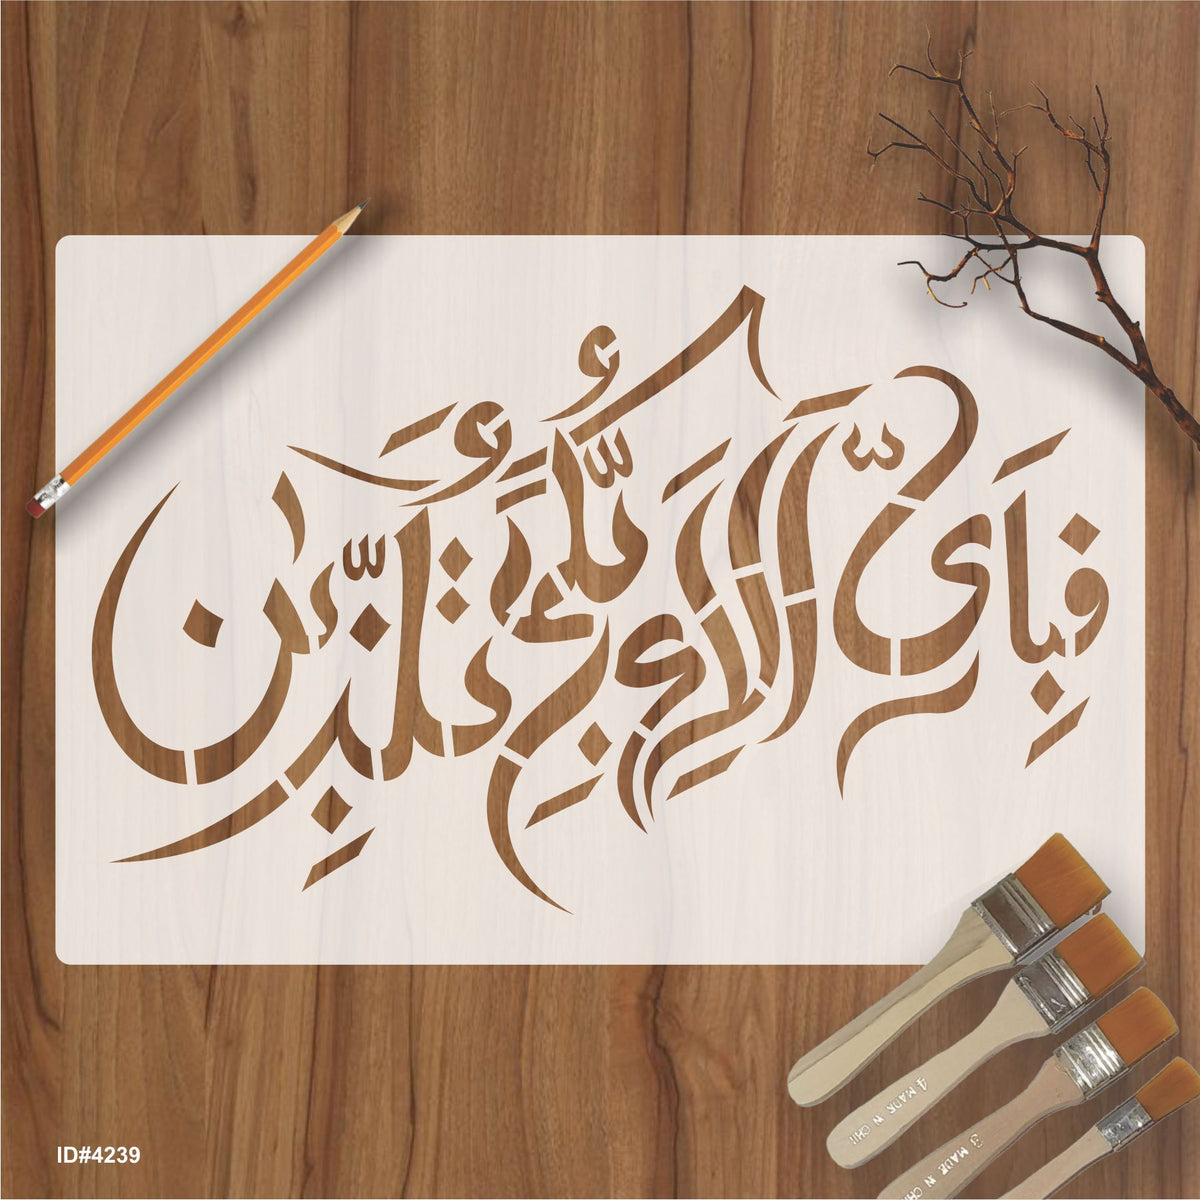 فَبِاَيِّ اٰلَآءِ رَبِّكُمَا تُكَذِّبٰنِ
ID#4239
4 MADE IN CHI
3 MADE IN CHI